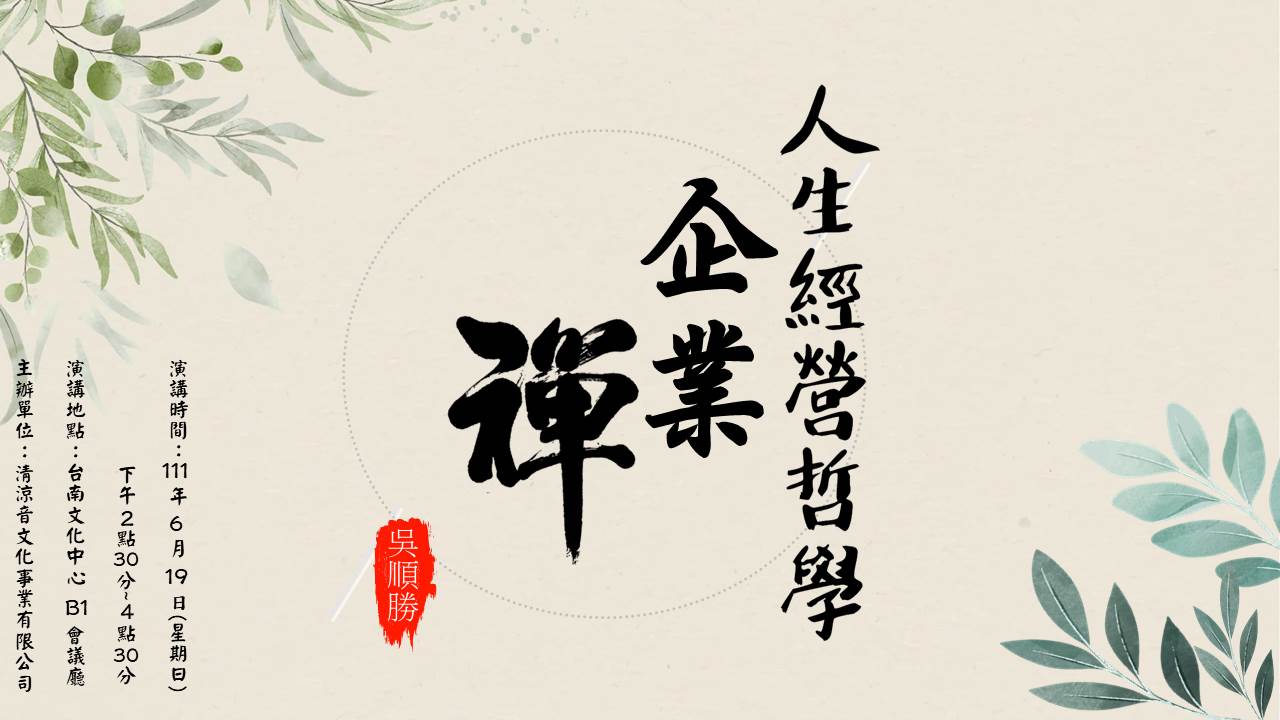 人生經營哲學
企業
禪
吳順勝
演講時間：111年6月19日(星期日)
下午2點30分~4點30分
演講地點：台南文化中心 B1 會議廳
主辦單位：清涼音文化事業有限公司